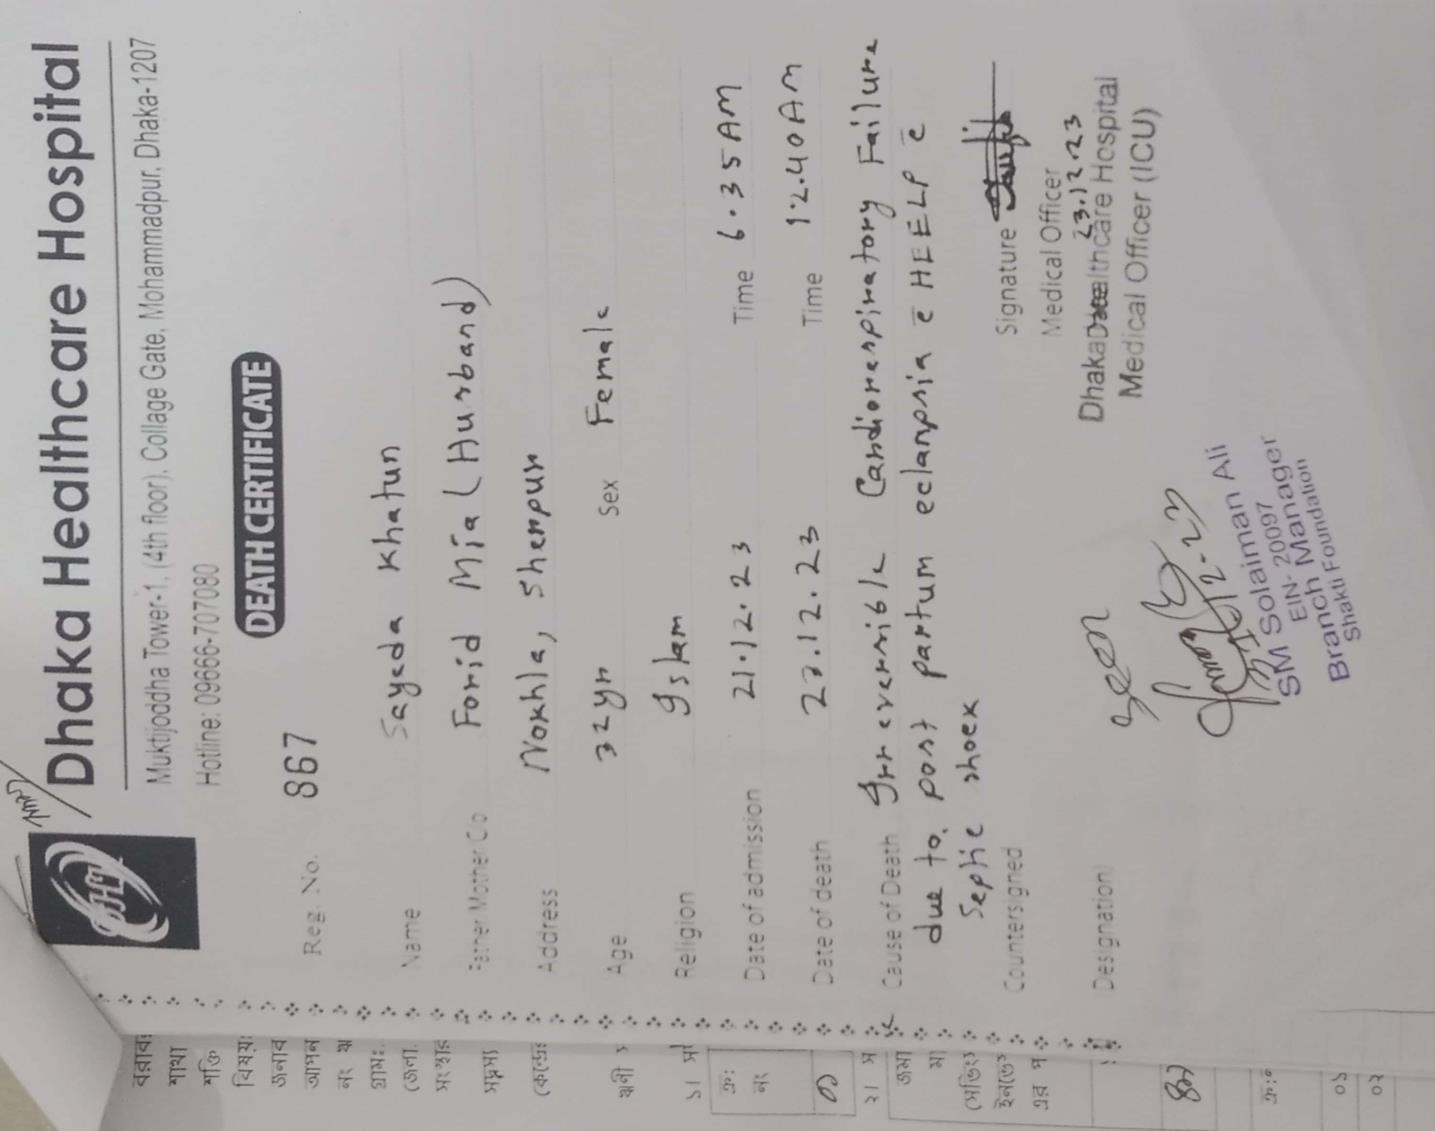 Dhaka Healthcare Hospital
Muktijoddha Tower-1, (4th floor), Collage Gate, Mohammadpur, Dhaka-1207
Hotline: 09666-707080
DEATH CERTIFICATE
Reg. No. 867
Name Sayeda Khatun
Father Mother C/o Forid Mia (Husband)
Address Nokhla, Sherpur
Age 32yr Sex Female
Religion Islam
Date of admission 21.12.23 Time 6.35 AM
Date of death 23.12.23 Time 12.40 AM
Cause of Death Irreversible Cardiorespiratory Failure
due to post partum eclampsia c̄ HEELP c̄
Septic shock
Countersigned
Signature
Medical Officer
23.12.23
Dhaka Healthcare Hospital
Medical Officer (ICU)
Designation
Seen
SM Solaiman Ali
EIN- 20097
Branch Manager
Shakti Foundation
বরাবর
শাখা
শক্তি
বিষয়:
জনাব
আপন
নং
গ্রাম:
জেলা.
সংস্থার
সদস্য
কেন্দ্রের
ঋণী
১। স
ক্র:
নং
০১
২। স
জমা
মা
এর প
ক্র:
০১
০২